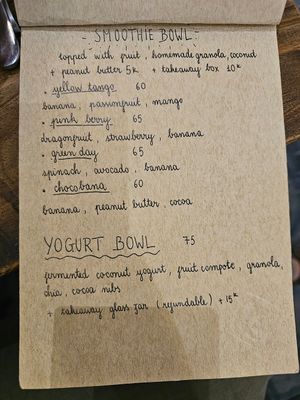 - SMOOTHIE BOWL -
topped with fruit, homemade granola, coconut
+ peanut butter 5k + takeaway box 10k
• yellow tango 60
banana, passionfruit, mango
• pink berry 65
dragonfruit, strawberry, banana
• green day 65
spinach, avocado, banana
• chocobana 60
banana, peanut butter, cocoa
YOGURT BOWL 75
fermented coconut yogurt, fruit compote, granola,
chia, cocoa nibs
+ takeaway glass jar (refundable) + 15k